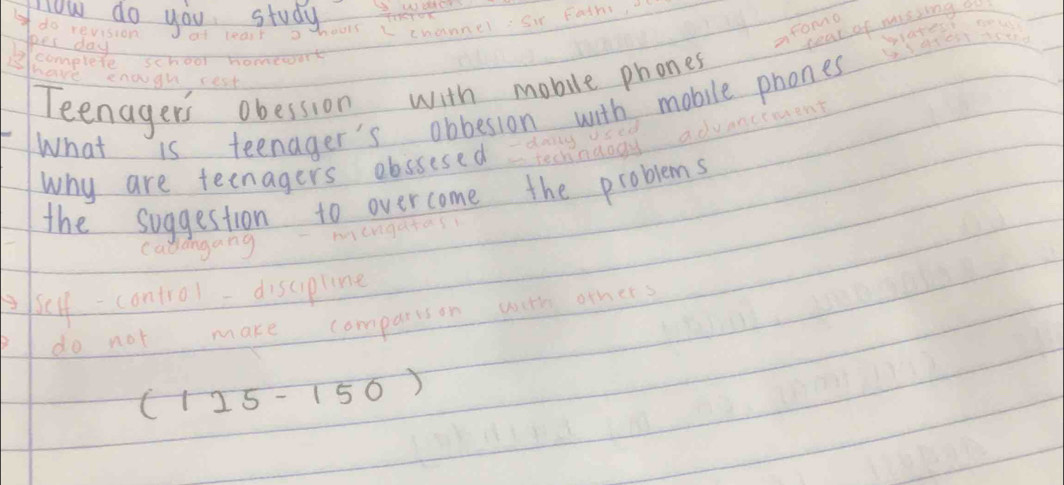 How do you study
→ do revision at least 2 hours
per day
channel : Sir Fathi
→ complete school homework
have enough rest
→ FOMO
fear of missing out
→ latest
→ latest
Teenager's obession with mobile phones
- What is teenager's obbesion with mobile phones
- daily used
Why are teenagers obssesed - technology advancement
the suggestion to overcome the problems
cadangang - mengatasi
→ self - control - discipline
→ do not make comparison with others
(125-150)